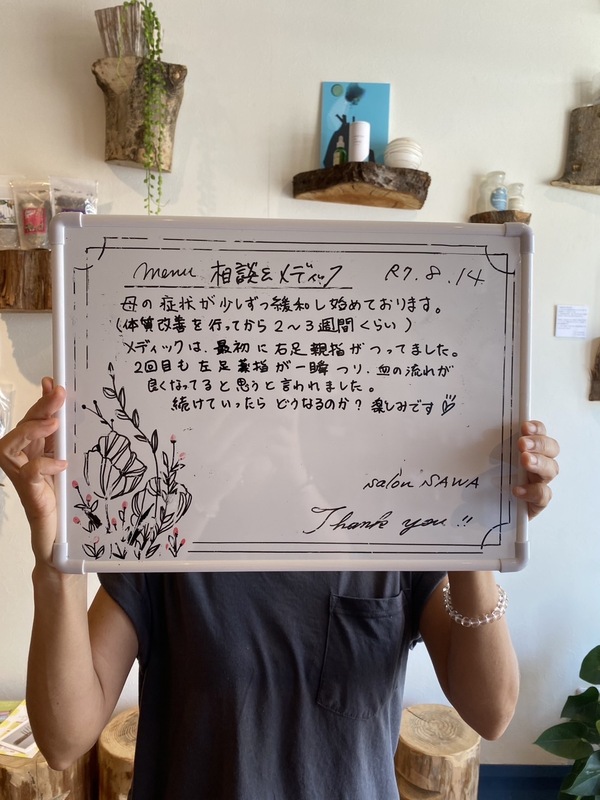 menu 相談&メディック R7.8.14
母の症状が少しずつ緩和し始めております。
(体質改善を行ってから2～3週間くらい)
メディックは、最初に右足親指がつってました。
2回目も左足薬指が一瞬つり、血の流れが
良くなってると思うと言われました。
続けていったらどうなるのか?楽しみです♡
salon SAWA
Thank you!!